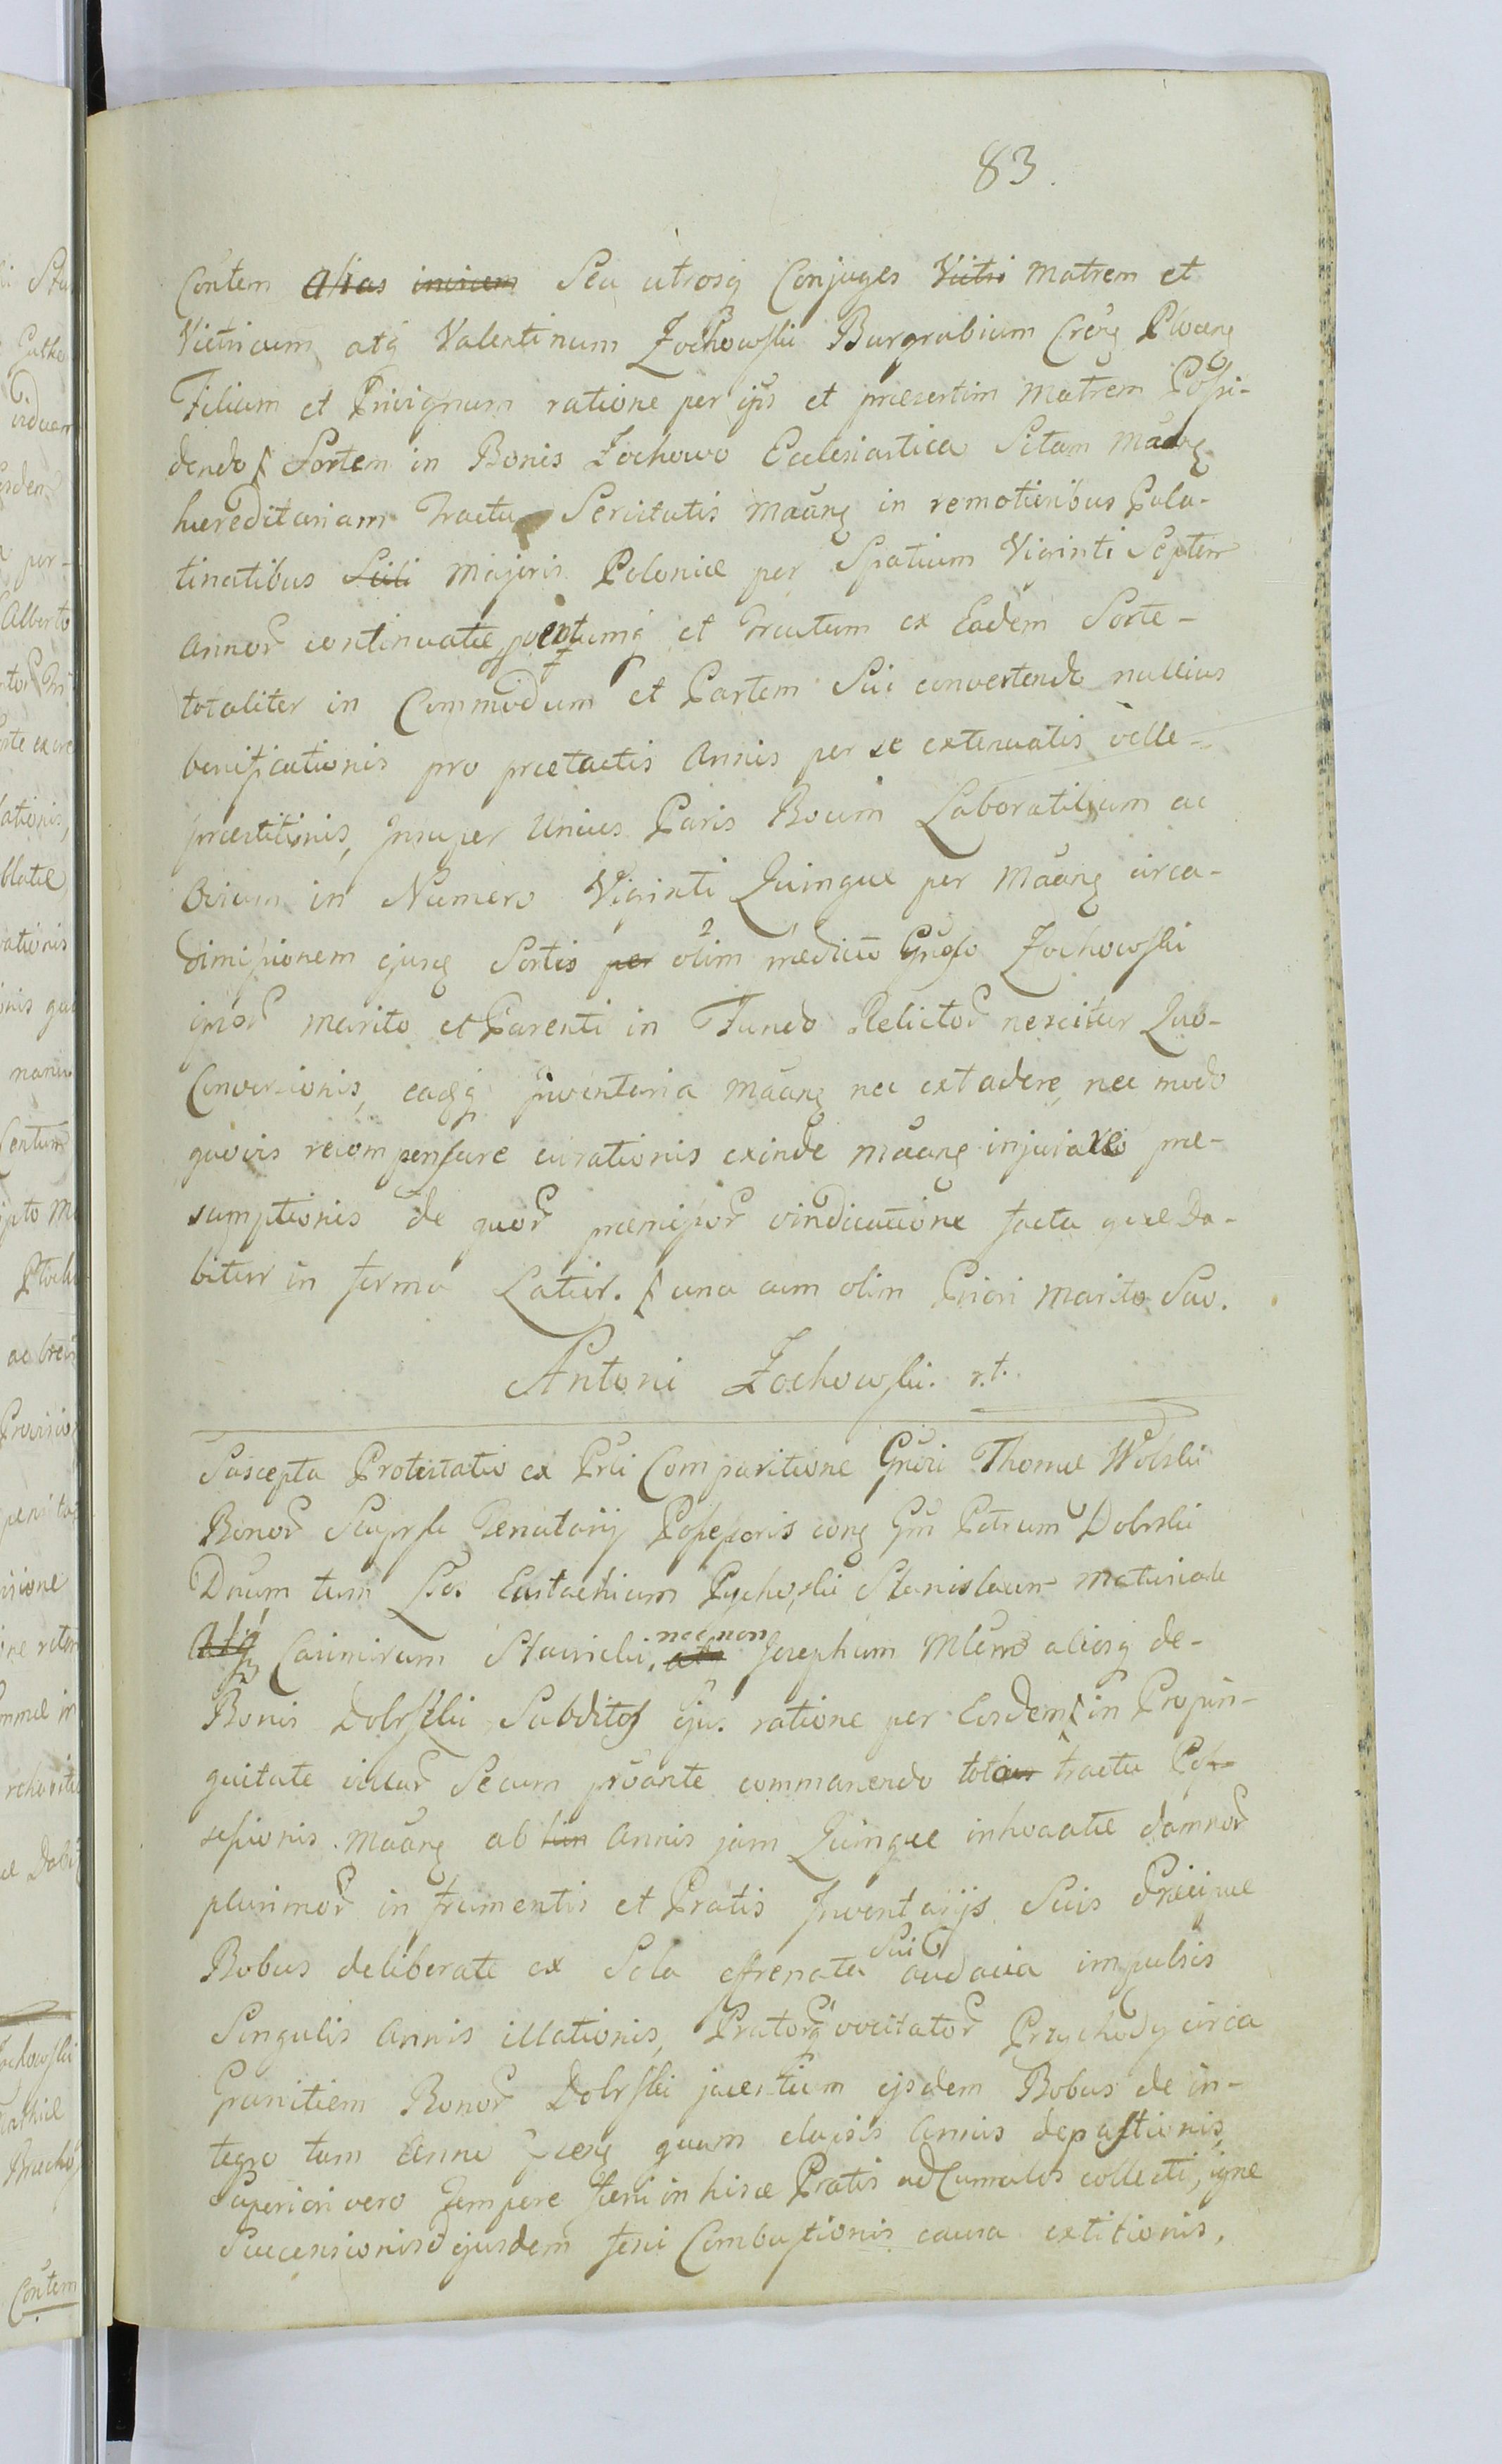 83.
Contem alias invicem Seu utrosq Conjuges Victri Matrem et
Vietricum atq Valentinum Żochowski Burgrabium Creng Plocens
Filium et Privignum ratione per ipss et praesertim Matrem Possi-
dendo Sortem in Bonis Żochowo Ecclesiastica Sitam Maang
haereditariam Tractu Servitutis Maang in remotioribus Pala-
tinatibus Scili Majoris Poloniae per Spatium Viginti Septem
Annor continuatae, et fructum ex Eadem Sorte-
totaliter in Commodum et Partem Sui convertendo nullius
benificationis pro praetactis Annis per se extenuatis velle-
praestitionis, Insuper Unius Paris Boum Laboratilium ac
Ovium in Numero Viginti Quinque per Maang circa-
dimissionem ejusq Sortis per olim Żochowski
ipsor Marito et Parenti in Fundo Relictor nescitur Quo-
Conversionis, eadq inventaria Maang nec extadere, nec modo
quovis recompensare curationis exinde Maang injuria prae-
sumptionis de quor praemissor vindicatione facta quae Da-
bitur in forma Latior. una cum olim Priori Marito Suo.
Antoni Żochowski. r.t.
Suscepta Protestatio ex Prli Comparitione Gnosi Thomae Wolski
Bonor Tenutarij Possessoris cong Gm Petrum Dobrski
Dnum tum Eustachium Stanislaum
atq Casimirum nec non Josephum aliosq de-
Bonis Dobrski Subditos ejus. ratione per Eosdem in Propin-
quitate Secum commanendo tractu Pos-
sessionis Maang ab Annis jam Quinque inhoatae damnor
plurimor in frumentis et Pratis Inventarijs Suis Praecipue
Bobus deliberate ex Sola effrenata Sui audacia impulsis
Singulis Annis illationis, Pratorq vocitator Przychody circa
Granitiem Bonor Dobrski jacentium ejsdem Bobus de in-
tegro tam Anno quam elapsis Annis depastionis,
Superiori vero Tempore foeni in hisce Pratis ad Cumulos collecti, igne
Succensionis ejusdem feni Combustionis causa extitionis.